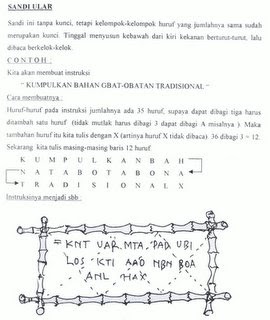 SANDI ULAR
Sandi ini tanpa kunci, tetapi kelompok-kelompok huruf yang jumlahnya sama sudah
merupakan kunci. Tinggal menyusun kebawah dari kiri kekanan berturut-turut, lalu
dibaca berkelok-kelok.
C O N T O H :
Kita akan membuat instruksi
" KUMPULKAN BAHAN GBAT-OBATAN TRADISIONAL "
Cara membuatnya :
Huruf-huruf pada instruksi jumlahnya ada 35 huruf, supaya dapat dibagi tiga harus
ditambah satu huruf (tidak mutlak harus dibagi 3 dapat dibagi A misalnya ). Maka
tambahan huruf itu kita tulis dengan X (artinya huruf X tidak dibaca). 36 dibagi 3 = 12.
Sekarang kita tulis masing-masing baris 12 huruf
K U M P U L K A N B A H
N A T A B O T A B O N A
T R A D I S I O N A L X
Instruksinya menjadi sbb :
= KNT UAR MTA PAD UBI
LOS KTI AAO NBN BOA
ANL HAX